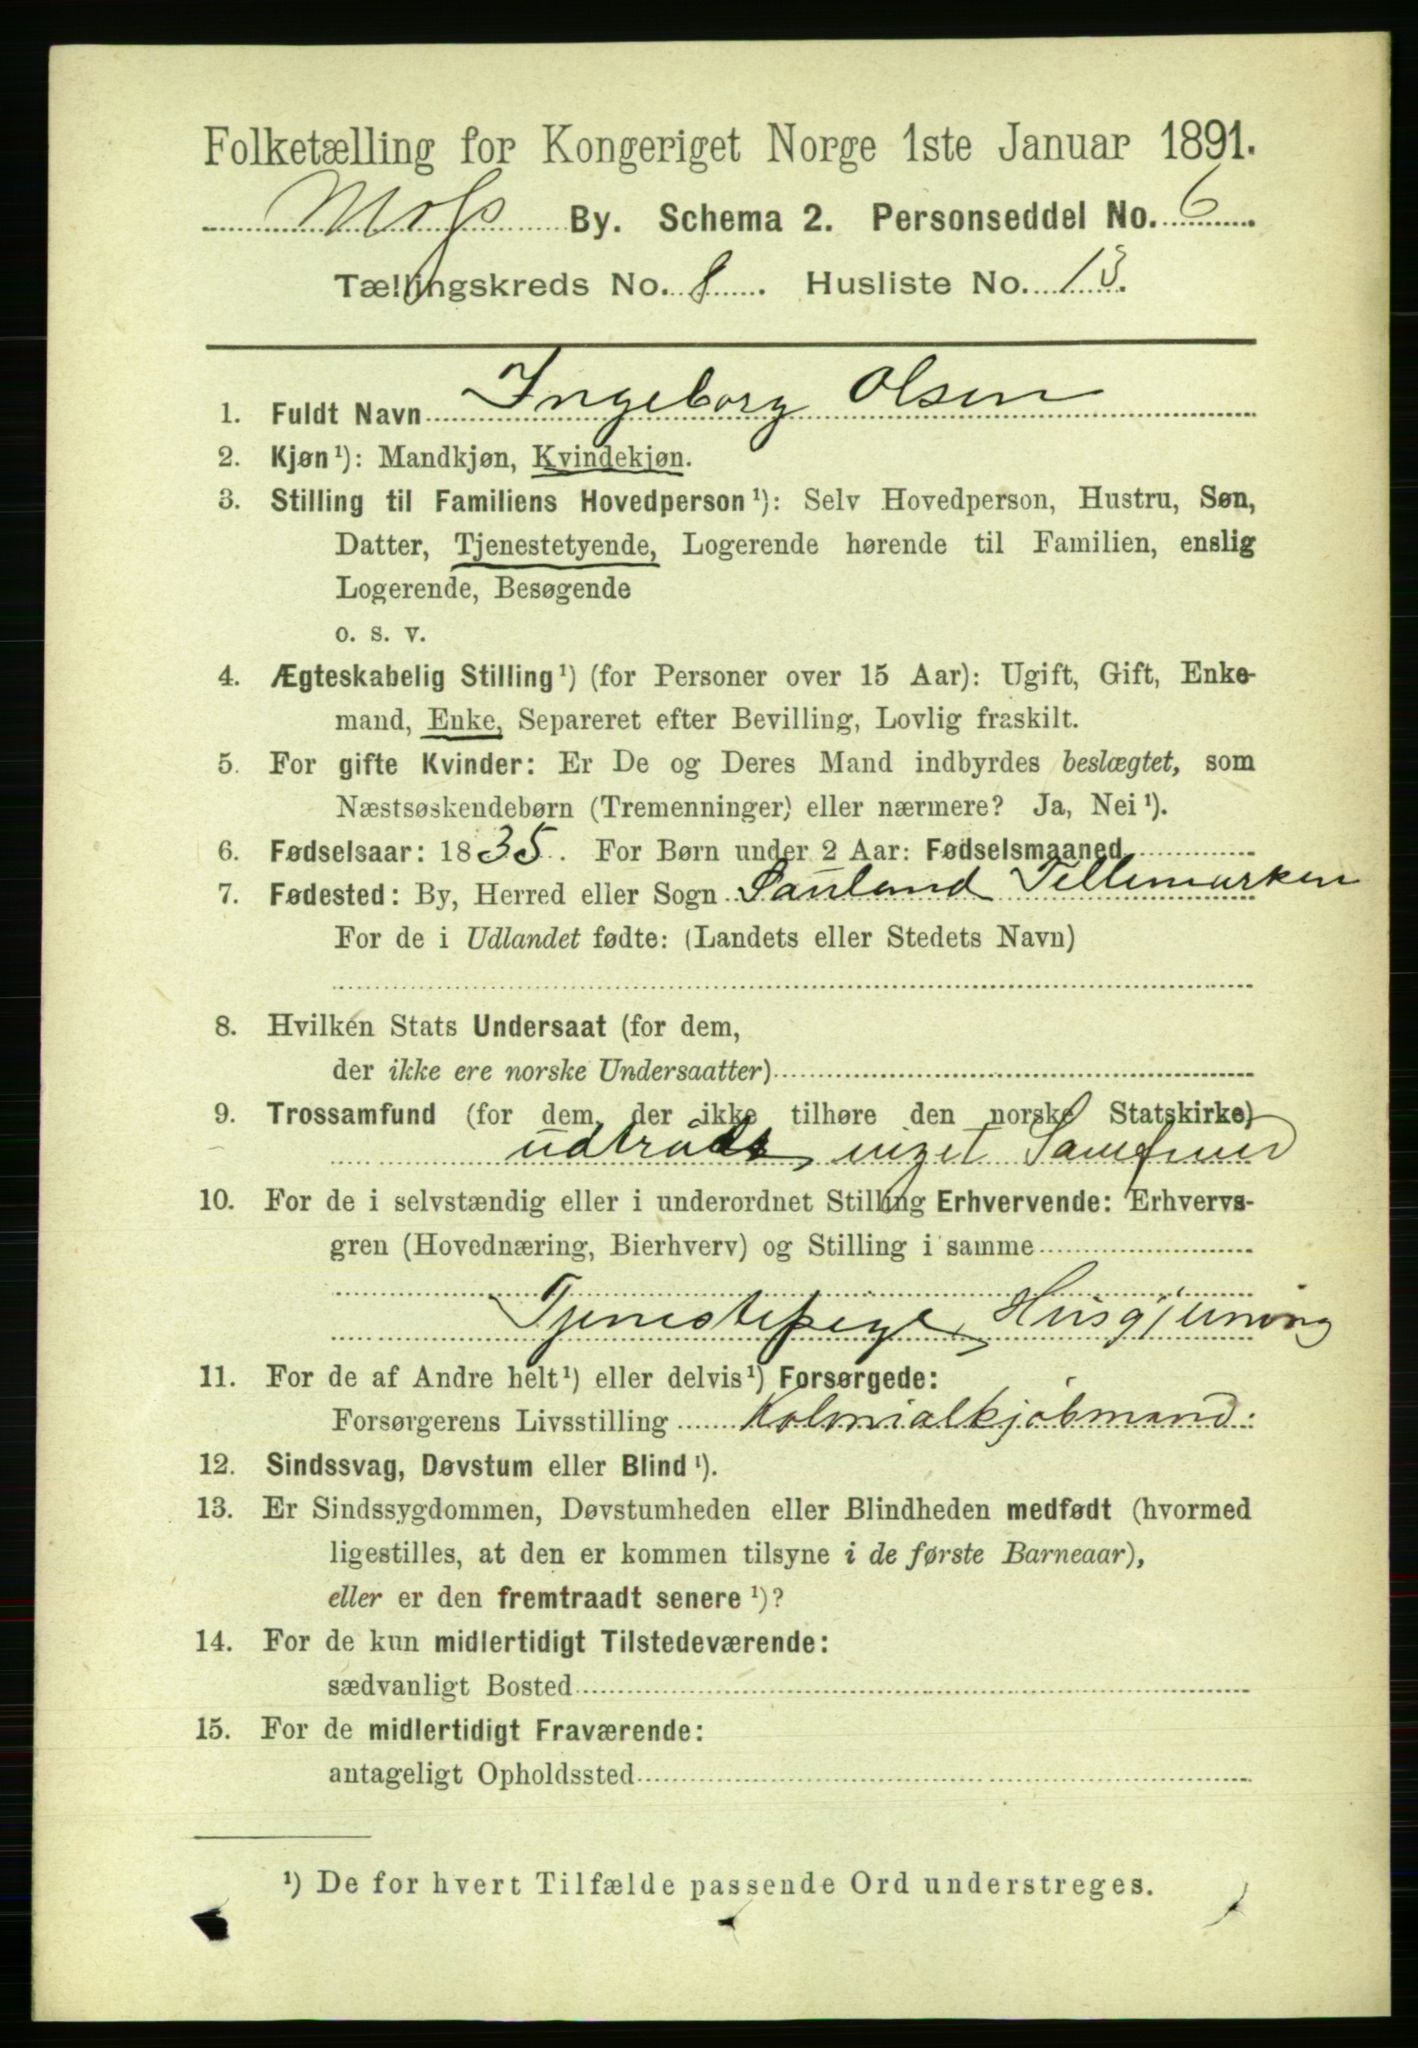 Folketælling for Kongeriget Norge 1ste Januar 1891.
Moss By. Schema 2. Personseddel No. 6
Tællingskreds No. 8. Husliste No. 13.
1. Fuldt Navn Ingeborg Olsen
2. Kjøn¹): Mandkjøn, Kvindekjøn.
3. Stilling til Familiens Hovedperson¹): Selv Hovedperson, Hustru, Søn,
Datter, Tjenestetyende, Logerende hørende til Familien, enslig
Logerende, Besøgende
o. s. v.
4. Ægteskabelig Stilling¹) (for Personer over 15 Aar): Ugift, Gift, Enke-
mand, Enke, Separeret efter Bevilling, Lovlig fraskilt.
5. For gifte Kvinder: Er De og Deres Mand indbyrdes beslægtet, som
Næstsøskendebørn (Tremenninger) eller nærmere? Ja, Nei¹).
6. Fødselsaar: 1835. For Børn under 2 Aar: Fødselsmaaned
7. Fødested: By, Herred eller Sogn Sauland Tellemarken
For de i Udlandet fødte: (Landets eller Stedets Navn)
8. Hvilken Stats Undersaat (for dem,
der ikke ere norske Undersaatter)
9. Trossamfund (for dem, der ikke tilhøre den norske Statskirke)
udtraadt, inget Samfund
10. For de i selvstændig eller i underordnet Stilling Erhvervende: Erhvervs-
gren (Hovednæring, Bierhverv) og Stilling i samme
Tjenestepige, Husgjerning
11. For de af Andre helt¹) eller delvis¹) Forsørgede:
Forsørgerens Livsstilling Kolonialkjøbmand.
12. Sindssvag, Døvstum eller Blind¹).
13. Er Sindssygdommen, Døvstumheden eller Blindheden medfødt (hvormed
ligestilles, at den er kommen tilsyne i de første Barneaar),
eller er den fremtraadt senere¹)?
14. For de kun midlertidigt Tilstedeværende:
sædvanligt Bosted
15. For de midlertidigt Fraværende:
antageligt Opholdssted
¹) De for hvert Tilfælde passende Ord understreges.